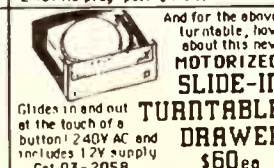 And for the above
turntable, how
about this new
MOTORIZED
SLIDE-I
TURNTABLE
DRAWER
$60ea
Glides in and out
at the touch of a
button! 240V AC and
includes 12V supply
Cat 03-2058